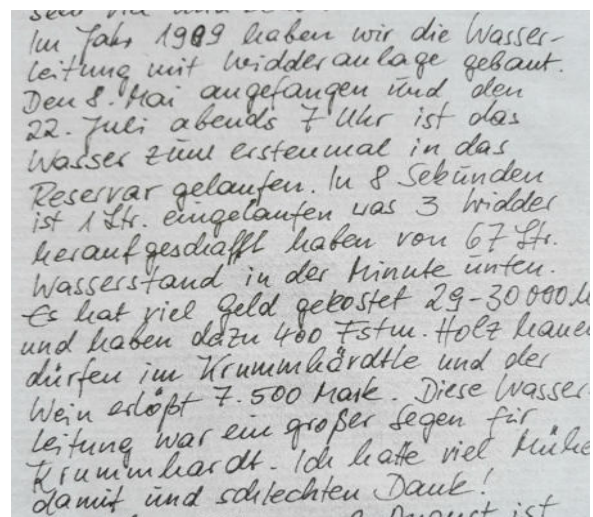 Im Jahr 1909 haben wir die Wasser-
leitung mit Widderanlage gebaut.
Den 8. Mai angefangen und den
22. Juli abends 7 Uhr ist das
Wasser zum erstenmal in das
Reservar gelaufen. In 8 Sekunden
ist 1 Ltr. eingelaufen was 3 Widder
heraufgeschafft haben von 67 Ltr.
Wasserstand in der Minute unten.
Es hat viel Geld gekostet 29-30000 M
und haben dazu 400 Fstm. Holz hauen
dürfen im Krummhärdtle und der
Wein erlößt 7.500 Mark. Diese Wasser-
leitung war ein großer Segen für
Krummhardt. Ich hatte viel Mühe
damit und schlechten Dank!
August ist